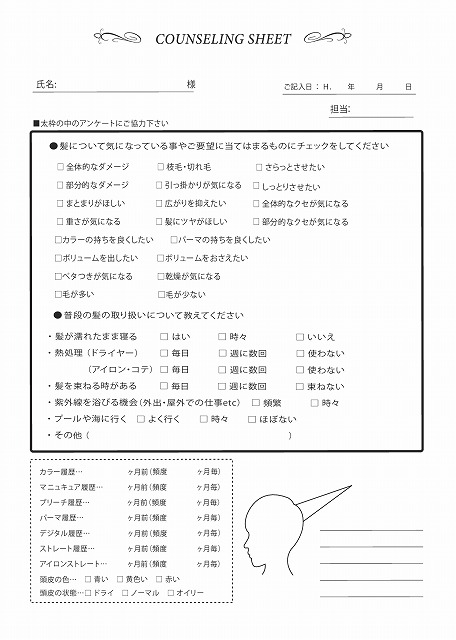 COUNSELING SHEET
氏名: 様 ご記入日 : H. 年 月 日
担当:
■太枠の中のアンケートにご協力下さい
●髪について気になっている事やご要望に当てはまるものにチェックをしてください
□ 全体的なダメージ □ 枝毛・切れ毛 □ さらっとさせたい
□ 部分的なダメージ □ 引っ掛かりが気になる □ しっとりさせたい
□ まとまりがほしい □ 広がりを抑えたい □ 全体的なクセが気になる
□ 重さが気になる □ 髪にツヤがほしい □ 部分的なクセが気になる
□カラーの持ちを良くしたい □パーマの持ちを良くしたい
□ボリュームを出したい □ボリュームをおさえたい
□ベタつきが気になる □乾燥が気になる
□毛が多い □毛が少ない
●普段の髪の取り扱いについて教えてください
・髪が濡れたまま寝る □ はい □ 時々 □ いいえ
・熱処理（ドライヤー） □ 毎日 □ 週に数回 □ 使わない
（アイロン・コテ） □ 毎日 □ 週に数回 □ 使わない
・髪を束ねる時がある □ 毎日 □ 週に数回 □ 束ねない
・紫外線を浴びる機会(外出・屋外での仕事etc) □ 頻繁 □ 時々
・プールや海に行く □ よく行く □ 時々 □ ほぼない
・その他（ ）
カラー履歴… ヶ月前（頻度 ヶ月毎）
マニュキュア履歴… ヶ月前（頻度 ヶ月毎）
ブリーチ履歴… ヶ月前（頻度 ヶ月毎）
パーマ履歴… ヶ月前（頻度 ヶ月毎）
デジタル履歴… ヶ月前（頻度 ヶ月毎）
ストレート履歴… ヶ月前（頻度 ヶ月毎）
アイロンストレート… ヶ月前（頻度 ヶ月毎）
頭皮の色… □ 青い □ 黄色い □ 赤い
頭皮の状態…□ ドライ □ ノーマル □ オイリー